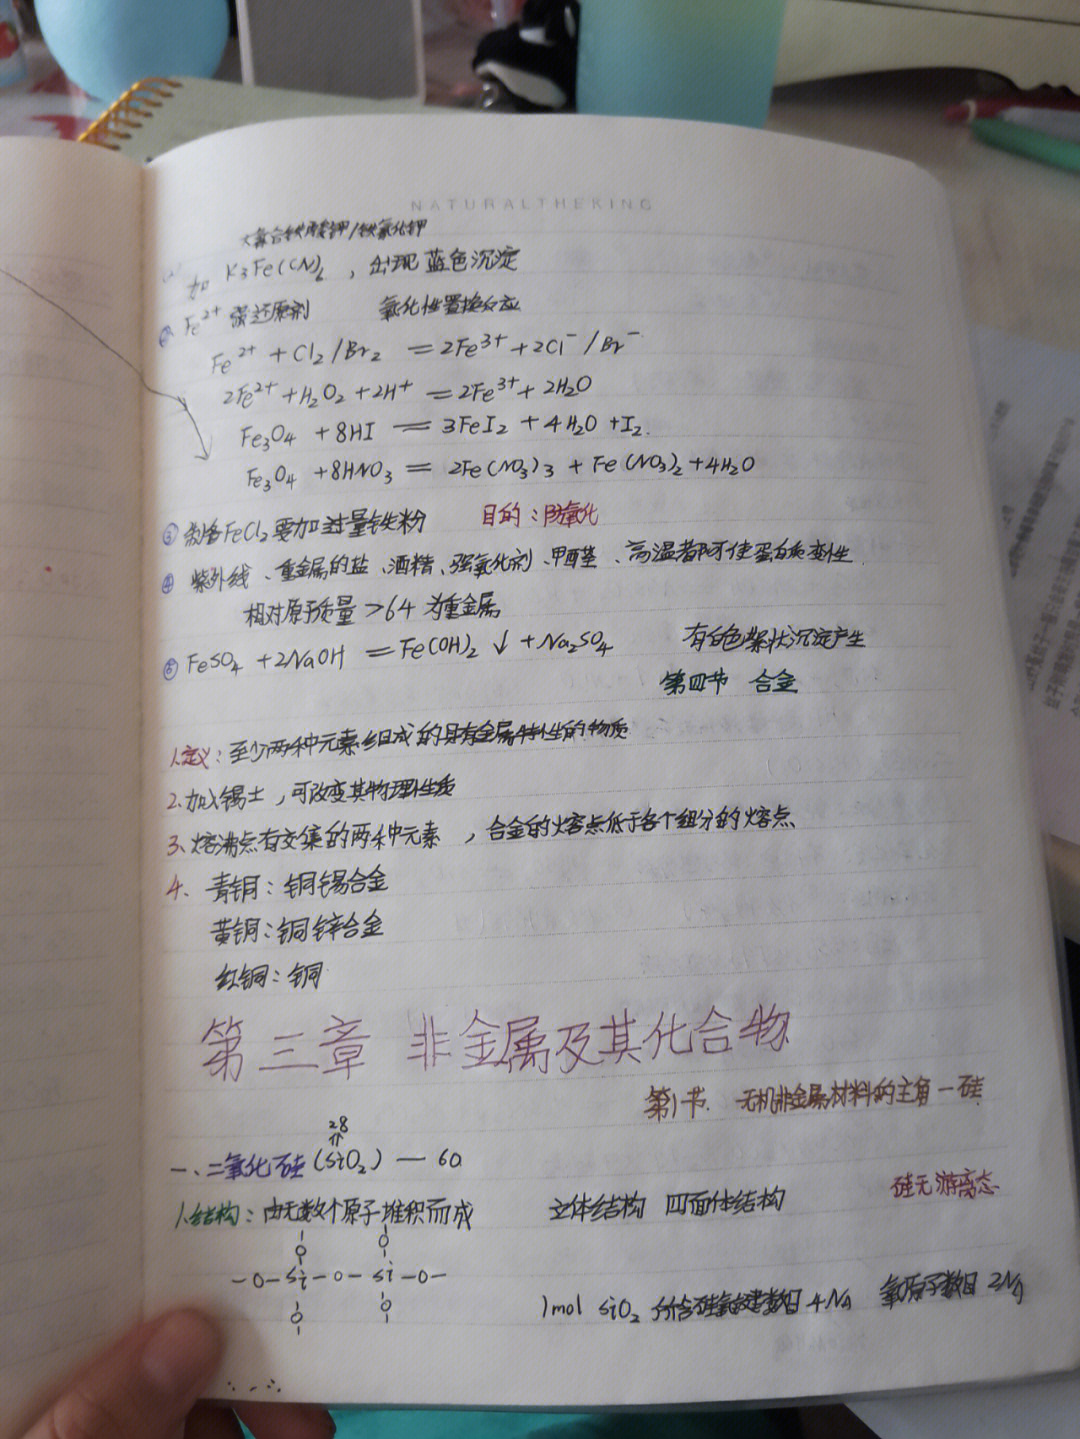 NATURALTHEKING
六氰合铁酸钾/铁氰化钾
加 K₃Fe(CN)₆ ，出现蓝色沉淀
② Fe²⁺ 强还原剂 氧化性置换反应
Fe²⁺ + Cl₂/Br₂ = 2Fe³⁺ + 2Cl⁻/Br⁻
2Fe²⁺ + H₂O₂ + 2H⁺ = 2Fe³⁺ + 2H₂O
Fe₃O₄ + 8HI = 3FeI₂ + 4H₂O + I₂.
Fe₃O₄ + 8HNO₃ = 2Fe(NO₃)₃ + Fe(NO₃)₂ + 4H₂O
③ 制备FeCl₂要加过量铁粉 目的：防氧化
④ 紫外线、重金属的盐、酒精、强氧化剂、甲醛、高温都可使蛋白质变性
相对原子质量 >64 为重金属
⑤ FeSO₄ + 2NaOH = Fe(OH)₂↓ + Na₂SO₄ 有白色絮状沉淀产生
第四节 合金
1.定义：至少两种元素组成的具有金属特性的物质
2.加入锡土，可改变其物理性质
3、熔沸点有交集的两种元素，合金的熔点低于各个组分的熔点
4、青铜：铜锡合金
黄铜：铜锌合金
红铜：铜
第三章 非金属及其化合物
第1节. 无机非金属材料的主角一硅
28
一、二氧化硅(SiO₂) — 60
硅无游离态
1.结构：由无数个原子堆积而成 立体结构 四面体结构
O O
-O-Si-O-Si-O-
O O
1mol SiO₂ 所含硅氧键数目4Nₐ 氧原子数目2Nₐ